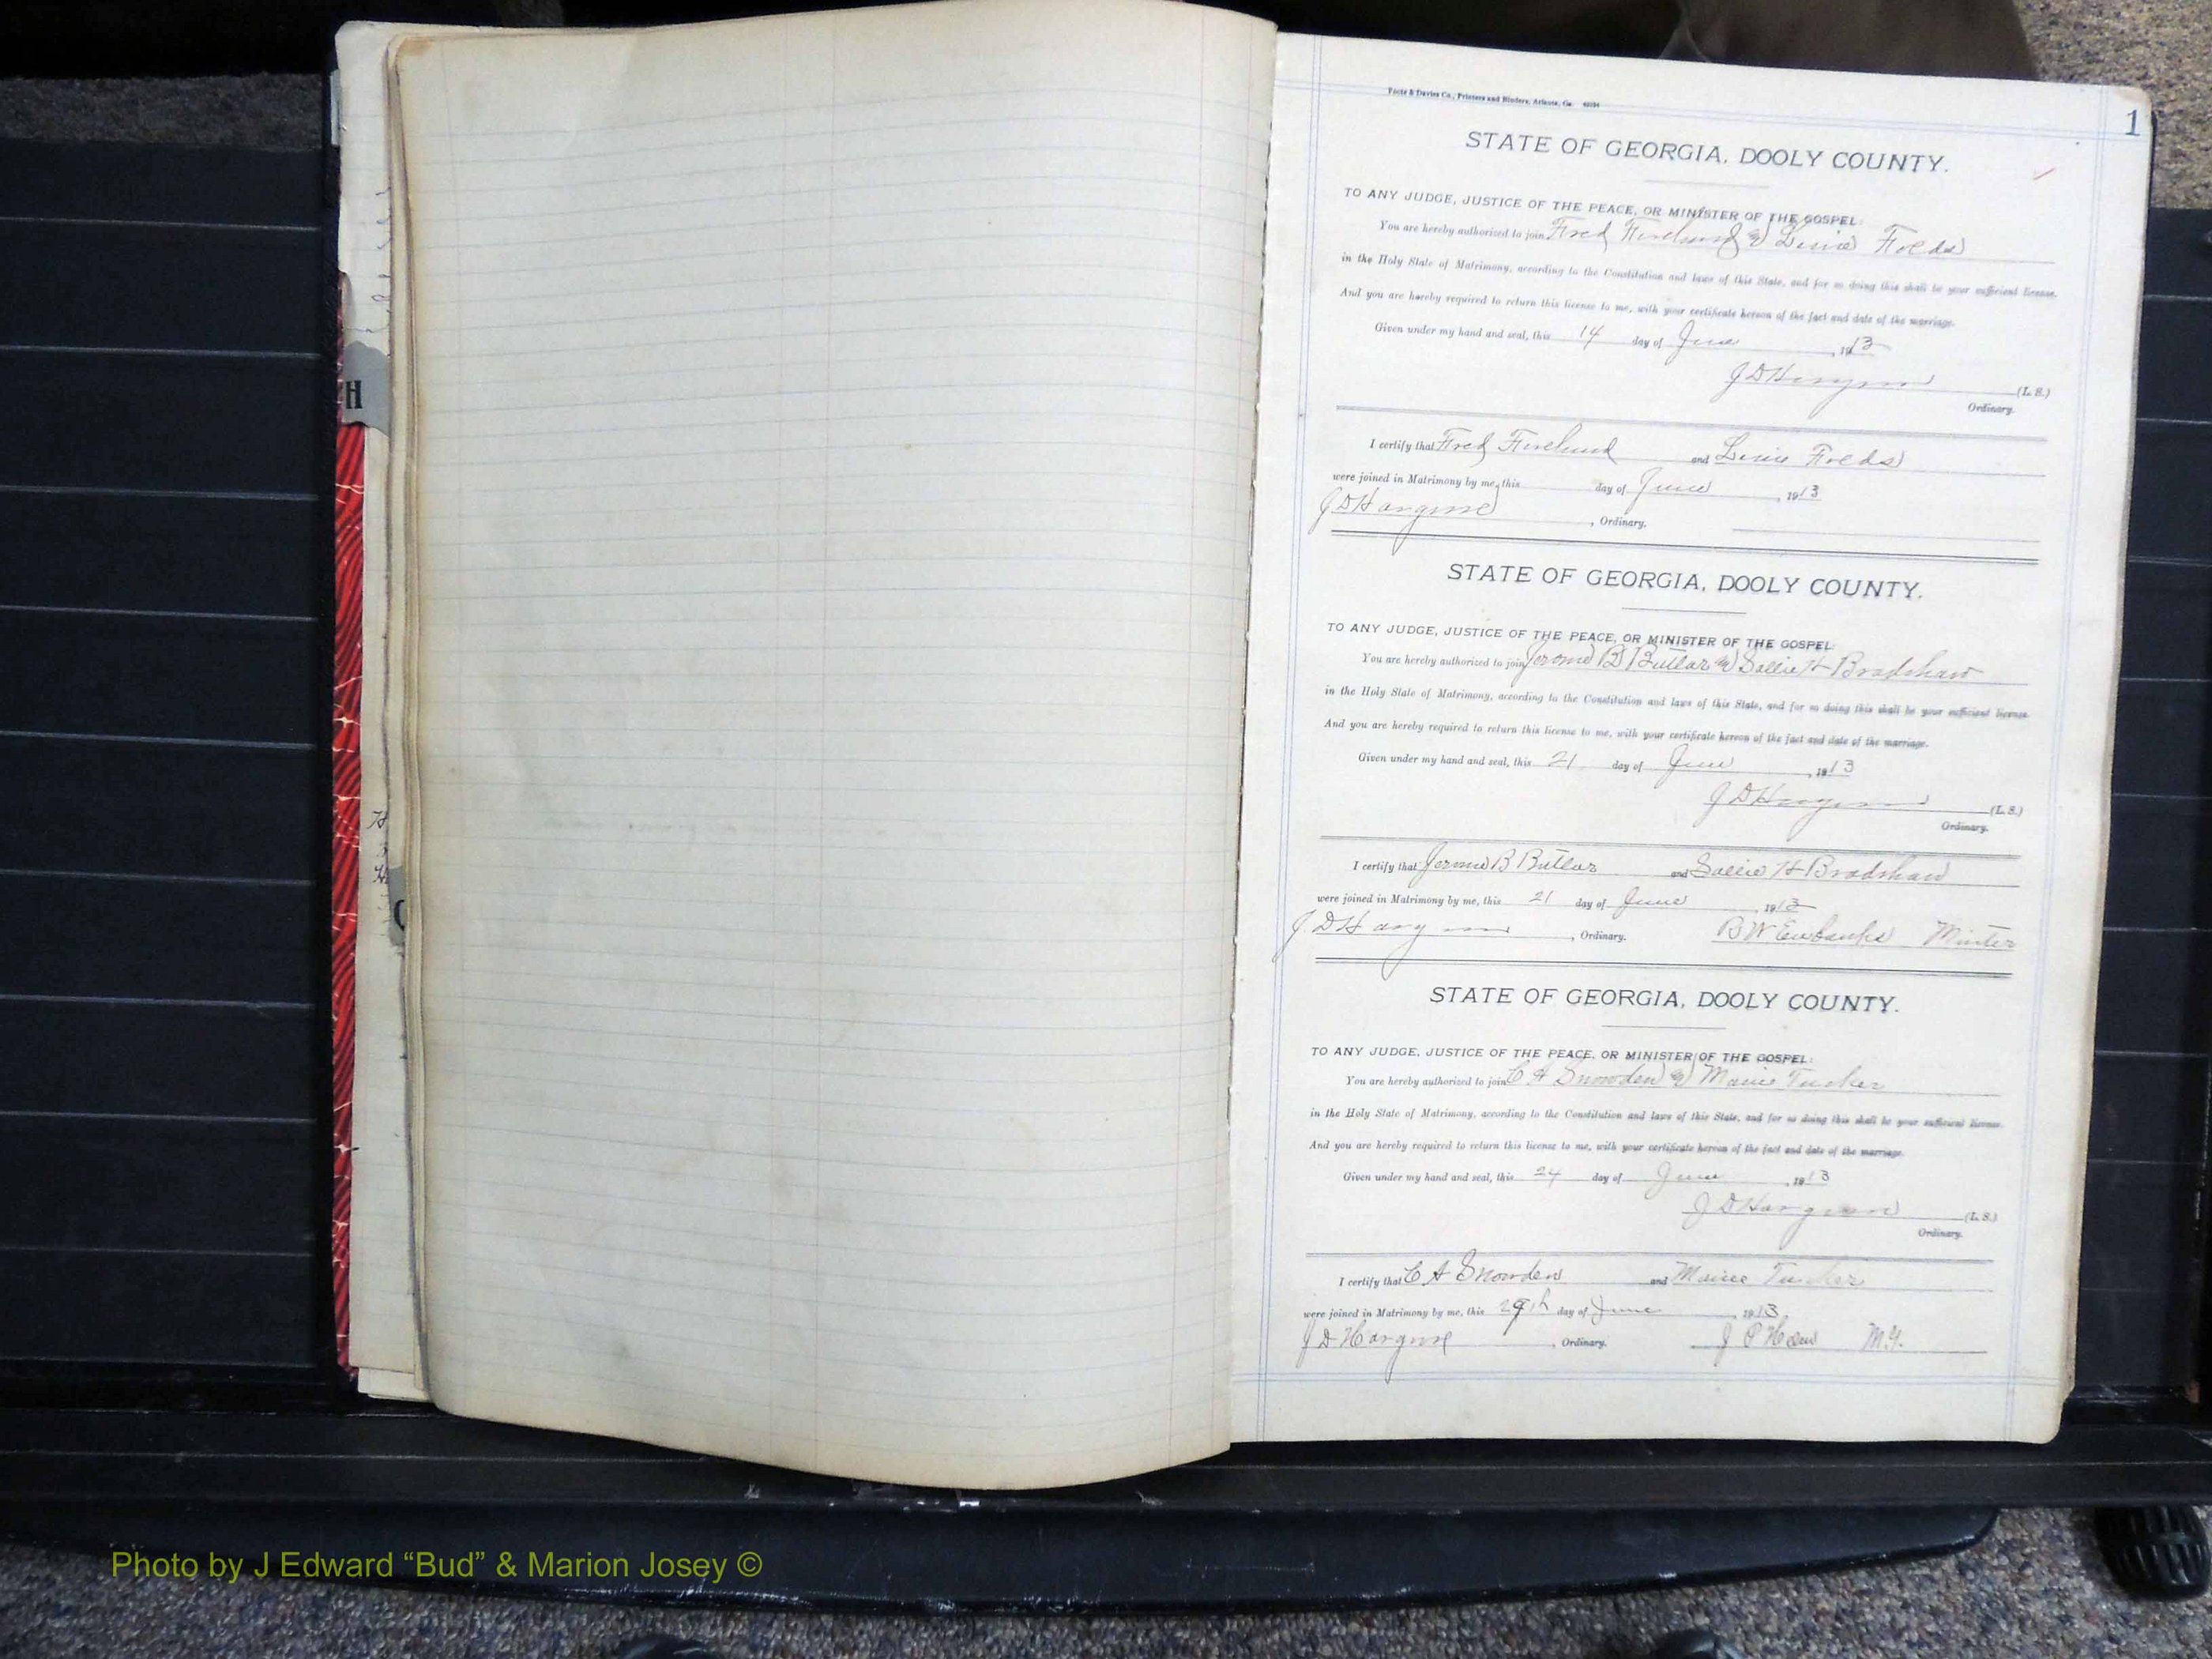 Foote & Davies Co., Printers and Binders, Atlanta, Ga.
1
STATE OF GEORGIA, DOOLY COUNTY.
TO ANY JUDGE, JUSTICE OF THE PEACE, OR MINISTER OF THE GOSPEL:
You are hereby authorized to join Fred
in the Holy State of Matrimony, according to the Constitution and laws of this State, and for so doing this shall be your sufficient license.
And you are hereby required to return this license to me, with your certificate hereon of the fact and date of the marriage.
Given under my hand and seal, this 14 day of June, 1913
(L. S.)
Ordinary.
I certify that Fred and
were joined in Matrimony by me, this day of June, 1913
J D Hargrove, Ordinary.
STATE OF GEORGIA, DOOLY COUNTY.
TO ANY JUDGE, JUSTICE OF THE PEACE, OR MINISTER OF THE GOSPEL:
You are hereby authorized to join Jerome B Butler & Sallie H Bradshaw
in the Holy State of Matrimony, according to the Constitution and laws of this State, and for so doing this shall be your sufficient license.
And you are hereby required to return this license to me, with your certificate hereon of the fact and date of the marriage.
Given under my hand and seal, this 21 day of June, 1913
(L. S.)
Ordinary.
I certify that Jerome B Butler and Sallie H Bradshaw
were joined in Matrimony by me, this 21 day of June, 1913
J. D Hargrove, Ordinary. B W Eubanks
H
STATE OF GEORGIA, DOOLY COUNTY.
TO ANY JUDGE, JUSTICE OF THE PEACE, OR MINISTER OF THE GOSPEL:
You are hereby authorized to join C A Snowden & Tucker
in the Holy State of Matrimony, according to the Constitution and laws of this State, and for so doing this shall be your sufficient license.
And you are hereby required to return this license to me, with your certificate hereon of the fact and date of the marriage.
Given under my hand and seal, this 24 day of June, 1913
J D Hargrove (L. S.)
Ordinary.
I certify that C A Snowden and Tucker
were joined in Matrimony by me, this 29th day of June, 1913
J D Hargrove, Ordinary. J P M.G.
Photo by J Edward “Bud” & Marion Josey ©